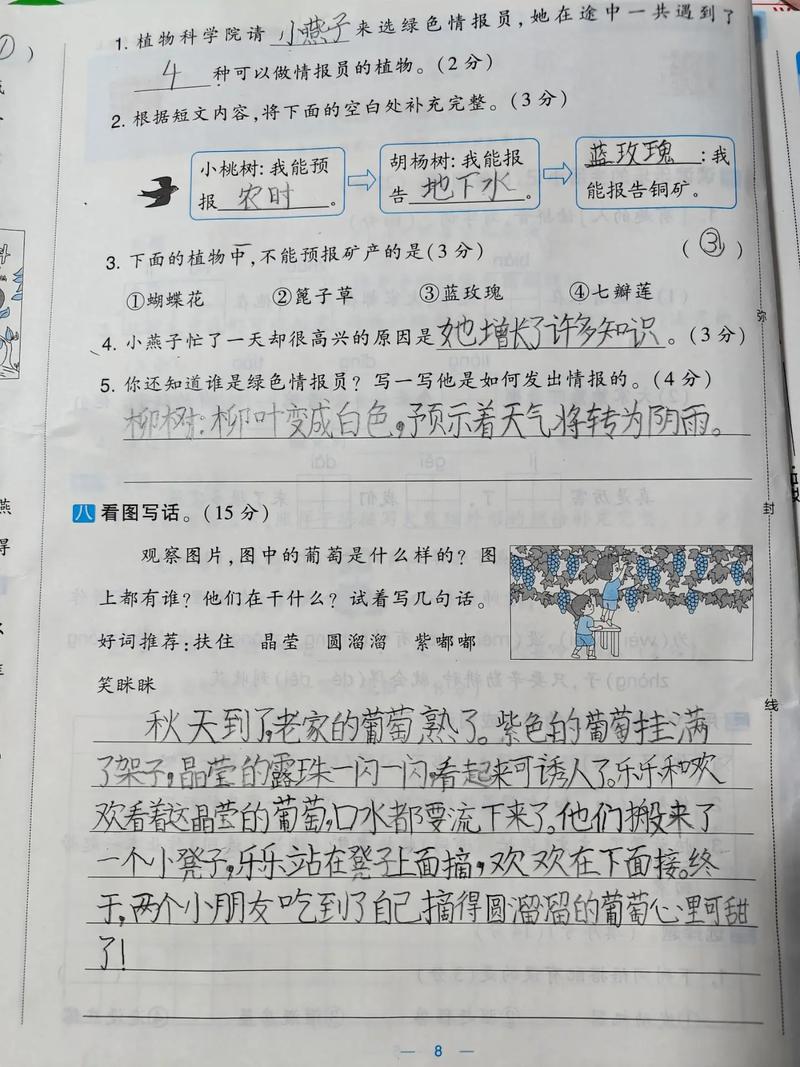 1. 植物科学院请 小燕子 来选绿色情报员,她在途中一共遇到了
4 种可以做情报员的植物。(2分)
2. 根据短文内容,将下面的空白处补充完整。(3分)
小桃树:我能预
报 农时 。
胡杨树:我能报
告 地下水 。
蓝玫瑰 :我
能报告铜矿。
3. 下面的植物中,不能预报矿产的是(3分) ( ③ )
①蝴蝶花 ②篦子草 ③蓝玫瑰 ④七瓣莲
4. 小燕子忙了一天却很高兴的原因是 她增长了许多知识 。(3分)
5. 你还知道谁是绿色情报员?写一写他是如何发出情报的。(4分)
柳树:柳叶变成白色,预示着天气将转为阴雨。
八 看图写话。(15分)
观察图片,图中的葡萄是什么样的?图
上都有谁?他们在干什么?试着写几句话。
好词推荐:扶住 晶莹 圆溜溜 紫嘟嘟
笑眯眯
秋天到了,老家的葡萄熟了。紫色的葡萄挂满
了架子,晶莹的露珠一闪一闪,看起来可诱人了。乐乐和欢
欢看着这晶莹的葡萄,口水都要流下来了。他们搬来了
一个小凳子,乐乐站在凳子上面摘,欢欢在下面接。终
于,两个小朋友吃到了自己摘得圆溜溜的葡萄心里可甜
了!
弥
封
线
— 8 —